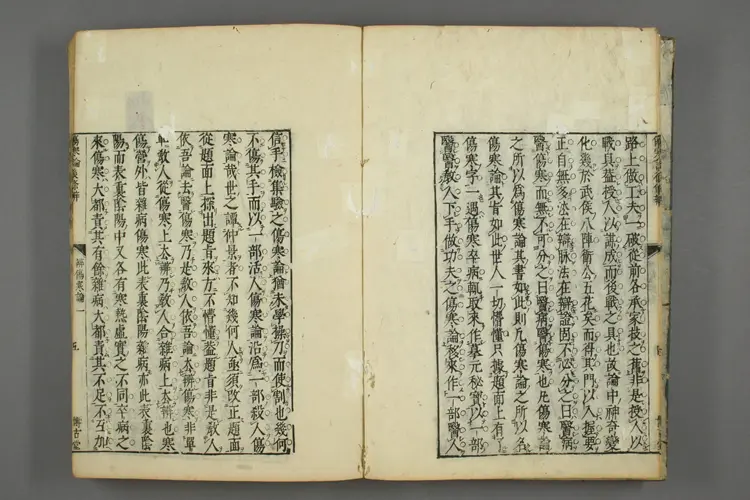 路上做工夫一破從前各承家技之舊非是授人以
戰具益授人以謀成而後戰之具也故論中神奇變
化幾於武侯八陣衛公五花矣而得其門以入握要
正自無多法在辯脉法在辯證固不必分之曰醫病
醫傷寒而無不可分之曰醫病醫傷寒也凡傷寒論
之所以為傷寒論其書如此則凡傷寒論之所以名
傷寒論其旨如此世人一切懵懂只據題面上有了
傷寒字一遇傷寒卒病輒取來作墓元秘寶以一部
醫醫教人下手做功夫之傷寒論移來作一部醫人
信手檢集驗之傷寒論猶未學操刀而使割也幾何
不傷其手而以一部活人傷寒論沿為一部殺人傷
寒論哉世之讀仲景者不知幾何人亟須改正題面
從題面上探出題旨來方不懵懂蓋題旨非是教人
依吾論去醫傷寒乃是教人依吾論去辨傷寒非單
單教人從傷寒上去辨乃教人合雜病上去辨也寒
傷營外皆雜病傷寒此表裏陰陽雜病亦此表裏陰
陽而表裏陰陽中又各有寒熱虛實之不同卒病之
來傷寒大都責其有餘雜病大都責其不足不互加
辨傷寒論一
五